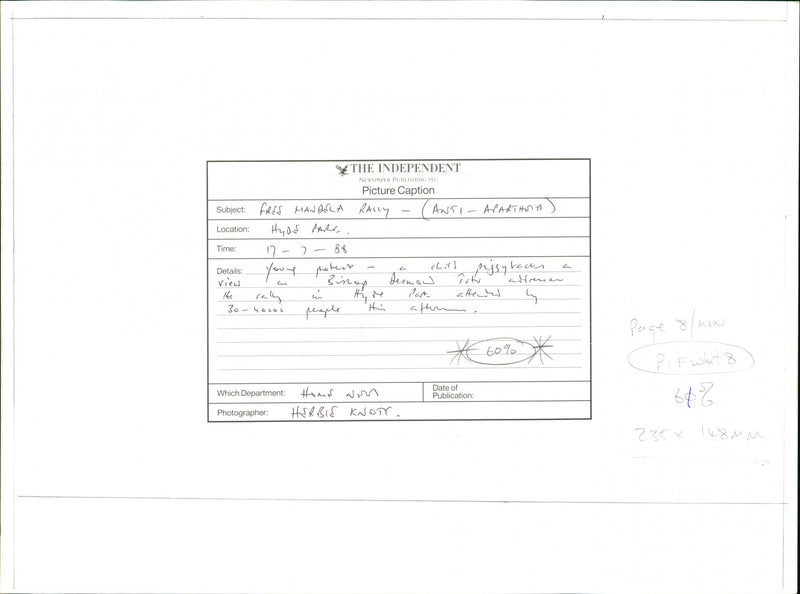 THE INDEPENDENT
NEWSPAPER PUBLISHING PLC
Picture Caption
Subject: FREE MANDELA RALLY - (ANTI-APARTHEID)
Location: HYDE PARK.
Time: 17-7-88
Details: Young protest - a child piggybacks a
view as Bishop Desmond Tutu addresses
the rally in Hyde Park attended by
30-40000 people this afternoon.
60%
Which Department: HOME NEWS
Date of
Publication:
Photographer: HERBIE KNOTT.
Page 8/MON
60%
235 x 148MM